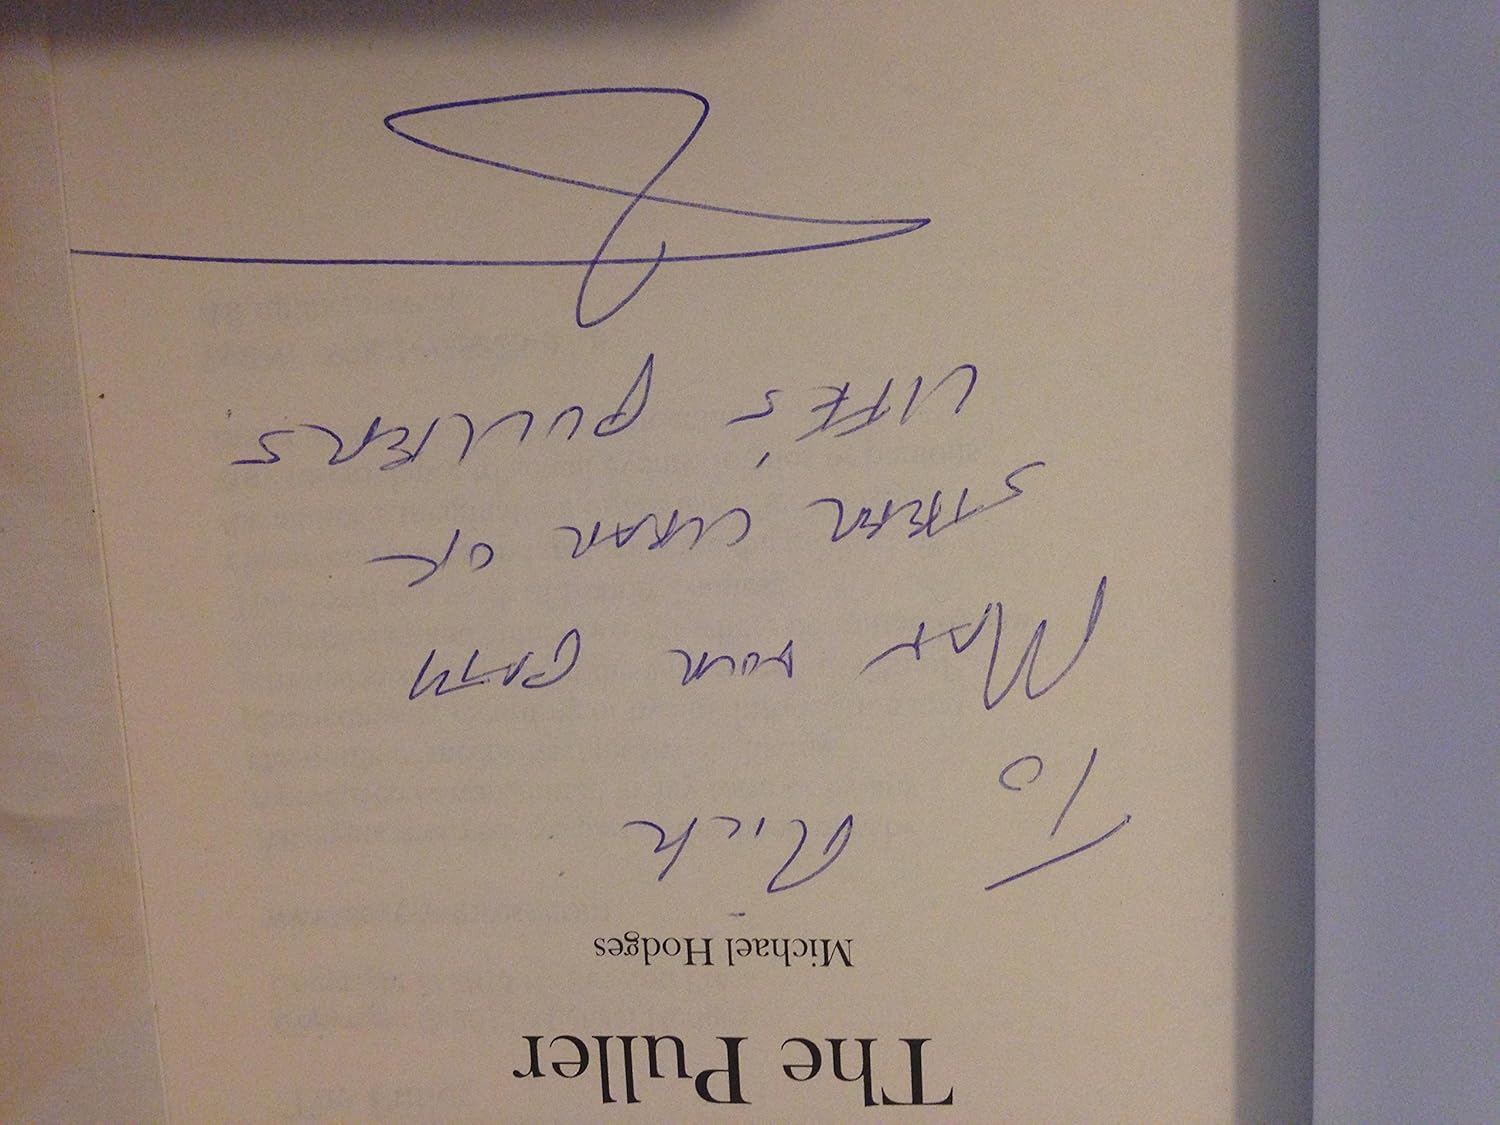 The Puller
Michael Hodges
To Rick
May your path
STEER CLEAR OF
LIFE'S PULLERS